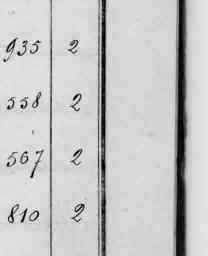 935 2
558 2
567 2
810 2